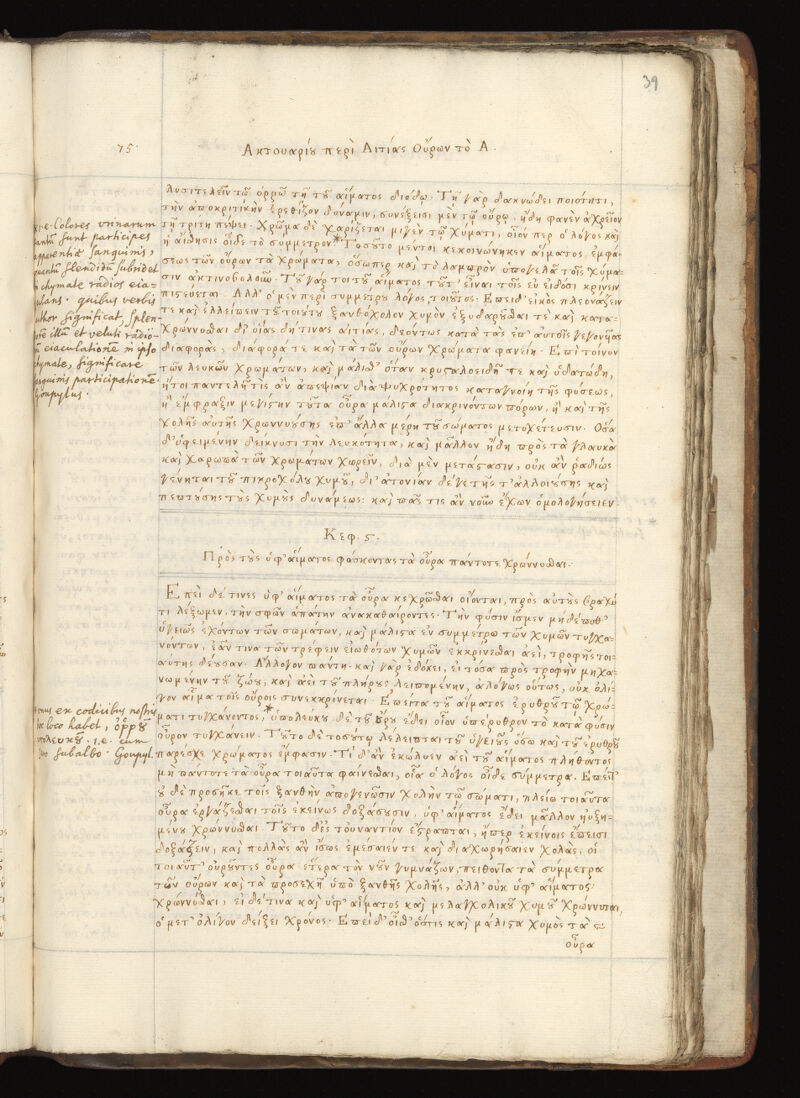 39
75.
Ακτουαρίου περὶ Αιτίας Οὔρων τὸ Α.
λυσιτελεῖν τῶ ὀρρῶ τῇ τοῦ αἵματος διόδω. Τῇ γὰρ δακνώδει ποιότητι,
τὴν ἀποκριτικὴν ἐρεθίζον δύναμιν, συνέξεισι μὲν τῶ οὔρω, ἤδη φανὲν ἀχρεῖον
τῇ τρίτη πέψει. Χρῶμα δὲ χαρίζεται μιγὲν τῶ χύματι, οἷόν περ ὁ λόγος καὶ
ἡ αἴσθησις οἶδε τὸ σύμμετρον. *Τοσοῦτο μέντοι κεκοινώνηκεν αἵματος ἐμφά-
σεως τῶν οὔρων τὰ χρώματα, ὅσωπερ καὶ τὸ λαμπρὸν ὑπογελᾶ τοῖς χύμα-
σιν ἀκτινοβολοῦν. Τοῦ γάρ τοι τοῦ αἵματος τοῦτ' εἶναι τοῖς εὖ εἰδόσι κρίνειν
πιστεύεται. Ἀλλ' ὁ μὲν περὶ συμμέτρου λόγος, τοιοῦτος. Ἐπεὶ δ' εἰκὸς πλεονάζειν
τε καὶ ἐλλείπειν τὸν τοιοῦτον ξανθόχολον χυμὸν ἐξυδαροῦσθαί τε καὶ κατα-
χρώννυσθαι δι' οἵας δή τινας αἰτίας, δεόντως κατὰ τὰς ἐπ' αὐτοῖς γεγονυίας
διαφοράς, διάφορά τε καὶ τὰ τῶν οὔρων χρώματα φανείη. Ἐπὶ τοίνυν
τῶν λευκῶν χρωμάτων, καὶ μάλισθ' ὅταν κρυσταλοειδῆ τε καὶ ὑδατώδη,
ἤτοι παντελῆ τις ἂν ἀπεψίαν διὰ ψυχρότητος καταγνοίη τῆς φύσεως,
ἢ ἔμφραξιν μεγίστην τοῦ τὰ οὖρα μάλιστα διακρινόντων πόρων, ἢ καὶ τῆς
χολῆς αὐτῆς χρωννυούσης ἐπ' ἄλλα μέρη τοῦ σώματος μετοχέτευσιν. Ὅσα
δ' ὑφειμένην δείκνυσι τὴν λευκότητα, καὶ μᾶλλον ἤδη πρὸς τὰ γλαυκὰ
καὶ χαρωπὰ τῶν χρωμάτων χωρεῖν, διὰ μὲν μετάστασιν, οὐκ ἂν ῥαδίως
γένηται τοῦ πικροχόλου χυμοῦ, δι' ἀτονίαν δέ γε τῆς τ' ἀλλοιούσης καὶ
πεπτούσης τοὺς χυμοὺς δυνάμεως· καὶ πᾶς τις ἂν νοῦν ἔχων ὁμολογήσειεν.
Κεφ. ς.
Πρὸς τοὺς ὑφ' αἵματος φάσκοντας τὰ οὖρα πάντοτε χρώννυσθαι.
Ἐπεὶ δέ τινες ὑφ' αἵματος τὰ οὖρα κεχρῶσθαι οἴονται, πρὸς αὐτοὺς βραχύ
τι λέξωμεν, τὴν σφῶν ἀπάτην ἀνακαθαίροντες. Τὴν φύσιν ἴσμεν μηδέποθ'
ὑγειῶς ἐχόντων τῶν σωμάτων, καὶ μάλιστα ἐν συμμέτρω τῶν χυμῶν τυγχα-
νόντων, ἐᾶν τινα τῶν τρέφειν εἰωθότων χυμῶν ἐκκρίνεσθαι ἀεὶ, τροφῆς τοι-
αύτης δέουσαν. Ἄλλογον πάντη· καὶ γὰρ ἐδόκει, εἰ τόσα πρὸς τροφὴν μηχα-
νωμένην τοῦ ζώου, καὶ ἀεὶ τοῦ πλήρους λειπομένην, ἀλόγως οὕτως, οὐκ ὀλί-
γον αἷμα τοῖς οὔροις συνεκκρίνεται. Ἔπειτα τοῦ αἵματος ἐρυθροῦ τῶ χρώ-
ματι τυγχάνοντος, *ὑπολεύκου δὲ τοῦ ὄρρου ἔδει οἷον ὑπέρυθρον τὸ κατὰ φύσιν
οὖρον τυγχάνειν. Τοῦτο δὲ τοσούτω λέλειπται τοῦ ὑγειοῦς ὅσω καὶ τοῦ ἐρυθροῦ
παρέσχε χρώματος ἔμφασιν. Τί δ' ἂν ἐκώλυεν ἀεὶ τοῦ αἵματος πληθοντος
μὴ πάντοτε τὰ οὖρα τοιαῦτα φαίνεσθαι, οἷα ὁ λόγος οἶδε σύμμετρα. Ἔπειτ'
οὐ δὲ προσῆκε τοῖς ξανθὴν ἀπογενῶσιν χολὴν τῶ σώματι, πλείω τοιαῦτα
οὖρα ἐργάζεσθαι τοῖς ἐκείνως δοξάζουσιν, ὑφ' αἵματος ἔδει μᾶλλον ηὐξη-
μένου χρώννυσθαι. Τοῦτο δ' ἐς τοὐναντίον ἐξτραπται, ἥπερ ἐκείνοις ἔπεισι
δοξάζειν, καὶ πολλὰς ἂν ἴσως ἐμέσαιέν τε καὶ διαχωρήσαιεν χολὰς, οἱ
τοιαῦτ' οὐροῦντες οὖρα ἕτερα τὸν νοῦν γυμνάζων, πειθονῖα τὰ σύμμετρα
τῶν οὔρων καὶ τὰ προσεχῆ ὑπὸ ξανθῆς χολῆς, ἀλλ' οὐκ ὑφ' αἵματος
χρώννυσθαι, εἰ δέ τινα καὶ ὑφ' αἵματος καὶ μελαγχολικοῦ χυμοῦ χρώννυται,
ὁ μετ' ὀλίγον δείξει χρόνος. Ἐπεὶ δ' οἶσθ' ὅστις καὶ μάλιστα χυμὸς τὰ
οὖρα
i.e. Colores urinarum
tantũ sunt participes
apparentiæ sanguinis,
quantũ splendidũ subridet
in chymate radios eia-
culans. quibus verbis
author significat, splen-
illũ et veluti radio-
eiaculationẽ in ipso
chymate, significare
sanguinis participationẽ
Goupylus.
ex codicibus nostris
hoc loco habet, ὀρροῦ
ὑπολευκου. i.e. cum
subalbo. Goupyl.